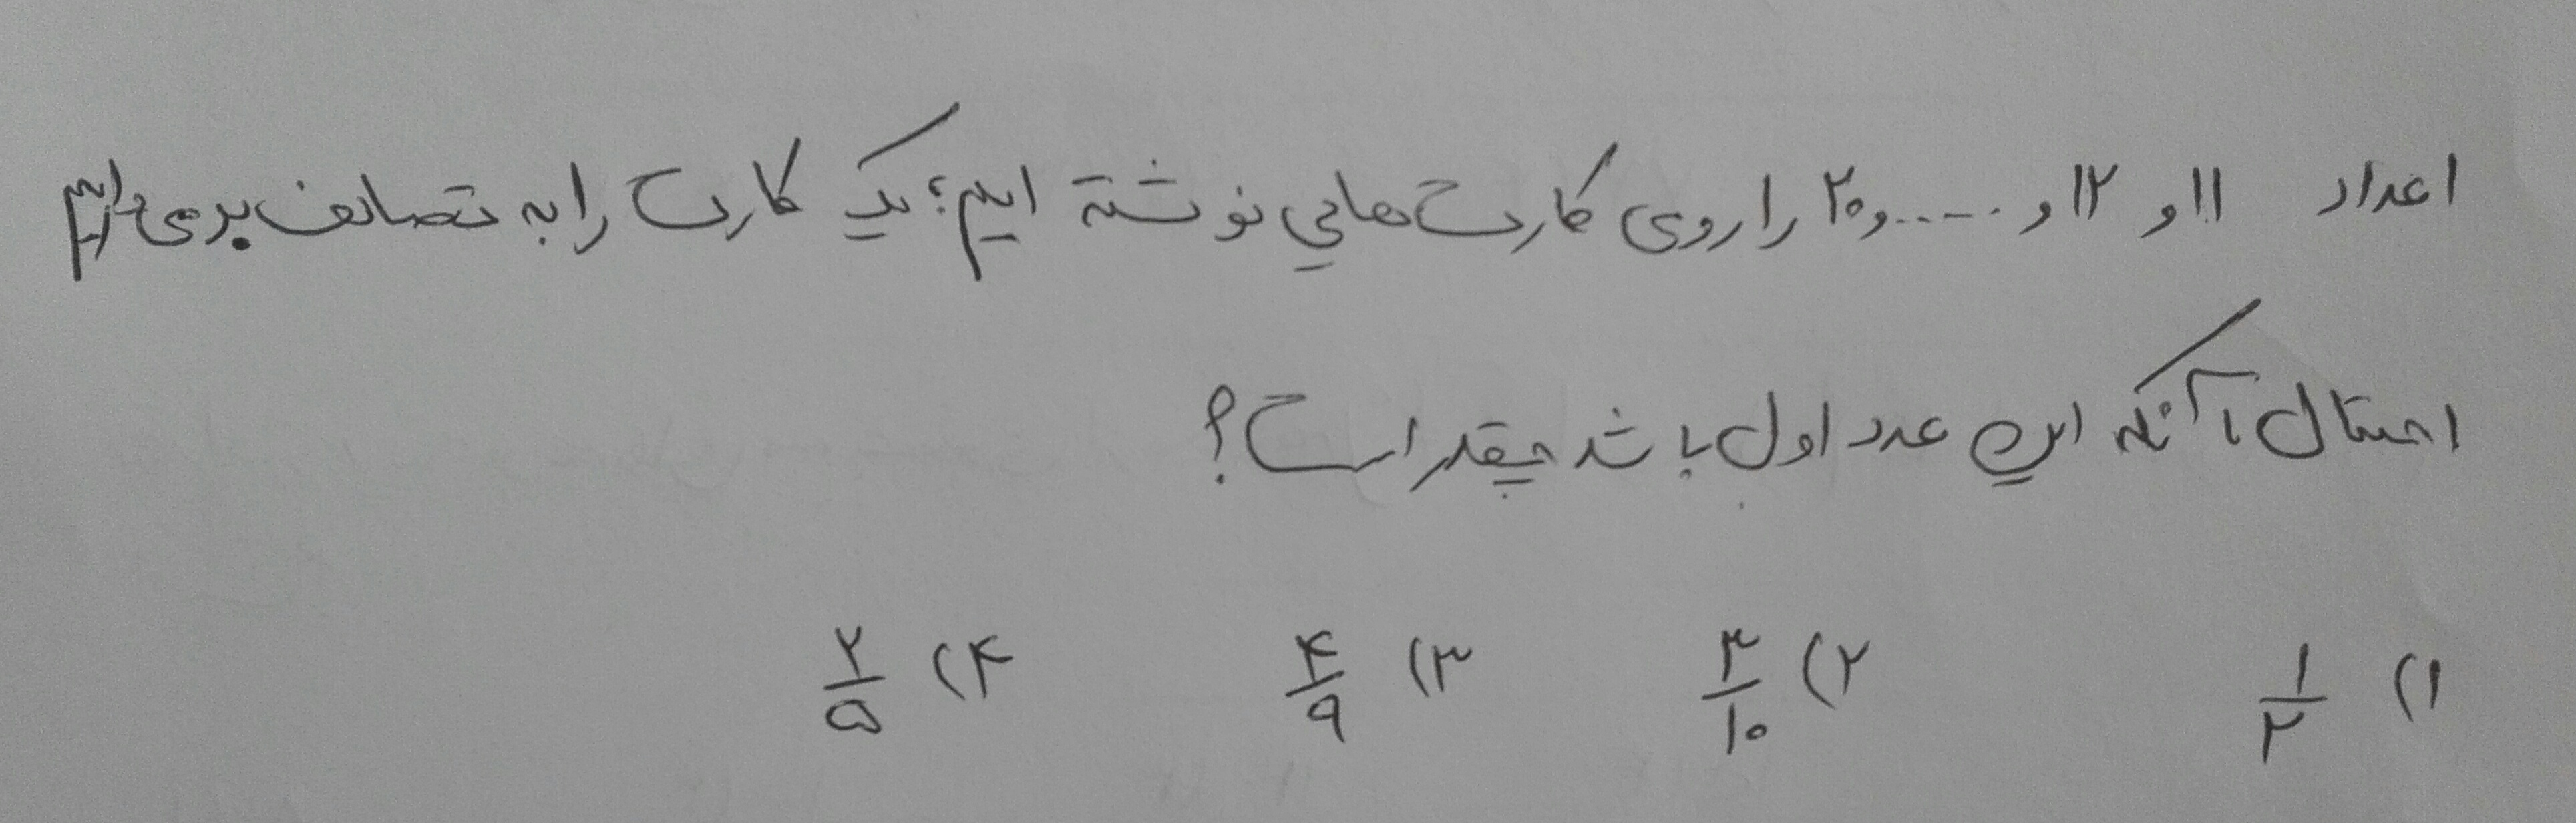 اعداد ۱۱ و ۱۲ و ..... و ۲۰ را روی کارت هایی نوشته ایم؛ یک کارت را به تصادف برمی داریم
احتمال آنکه این عدد اول باشد چقدر است؟
۱) ۱/۲ ۲) ۳/۱۰ ۳) ۴/۹ ۴) ۲/۵